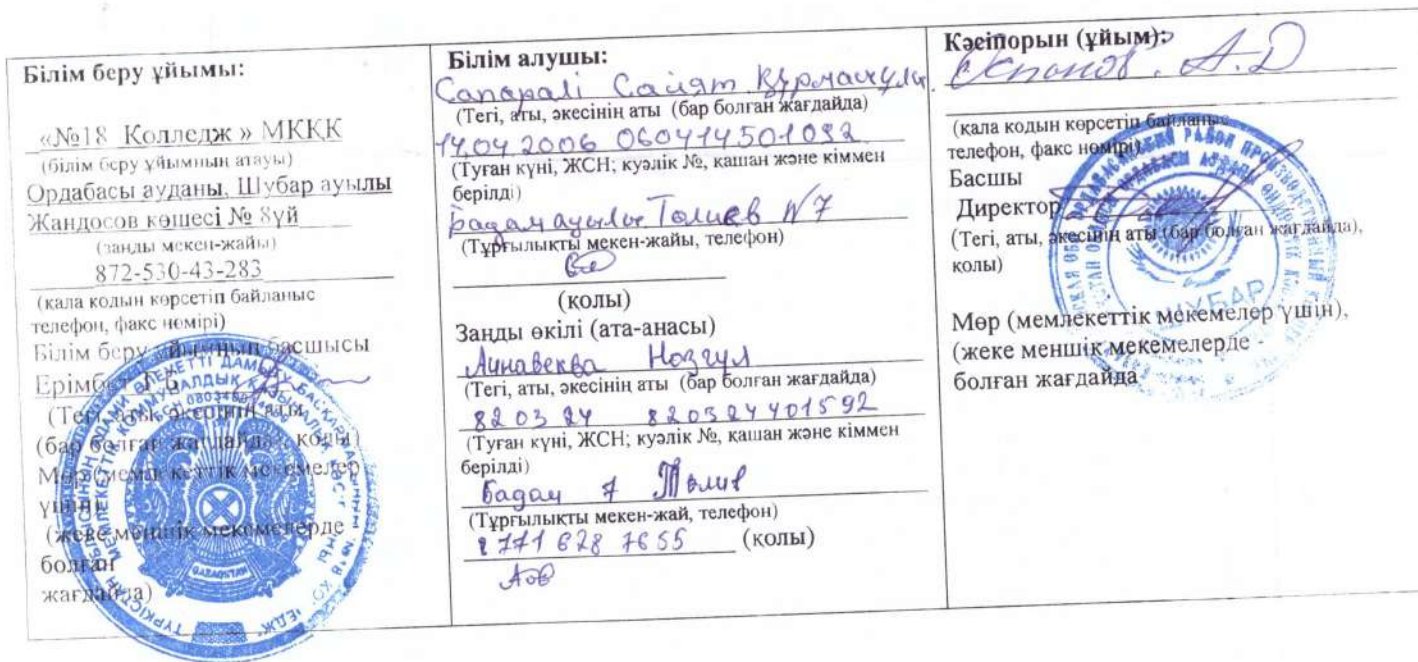 Білім беру ұйымы:
«№18 Колледж » МКҚК
(білім беру ұйымның атауы)
Ордабасы ауданы, Шубар ауылы
Жандосов көшесі № 8үй
(заңды мекен-жайы)
872-530-43-283
(қала кодын көрсетіп байланыс
телефон, факс нөмірі)
Білім беру ұйымның басшысы
Ерімбет Г.Б.
(Тегі, аты, әкесінің аты
(бар болған жағдайда), қолы)
Мөр (мемлекеттік мекемелер
үшін),
(жеке меншік мекемелерде
болған
жағдайда)
Білім алушы:
Сапарәлі Саият Құрманұлы
(Тегі, аты, әкесінің аты (бар болған жағдайда)
14.04 2006 060414501092
(Туған күні, ЖСН; куәлік №, қашан және кіммен
берілді)
Бадам ауылы Толиев №7
(Тұрғылықты мекен-жайы, телефон)
(қолы)
Заңды өкілі (ата-анасы)
Назгул
(Тегі, аты, әкесінің аты (бар болған жағдайда)
820324 820324401592
(Туған күні, ЖСН; куәлік №, қашан және кіммен
берілді)
Бадам 7
(Тұрғылықты мекен-жай, телефон)
771 628 7655 (қолы)
Кәсіпорын (ұйым):
Оспанов. А.D
(қала кодын көрсетіп байланыс
телефон, факс нөмірі)
Басшы
Директор
(Тегі, аты, әкесінің аты (бар болған жағдайда),
қолы)
ШУБАР
Мөр (мемлекеттік мекемелер үшін),
(жеке меншік мекемелерде -
болған жағдайда
QAZAQSTAN